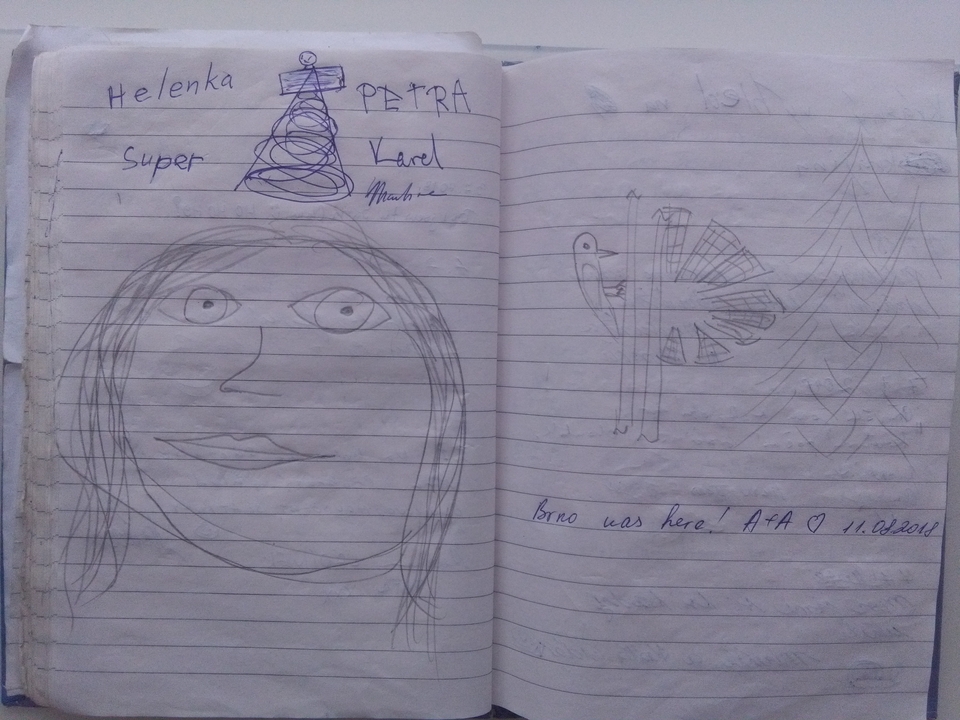 Helenka
PETRA
Super
Karel
Brno was here! A+A ♡ 11.08.2018